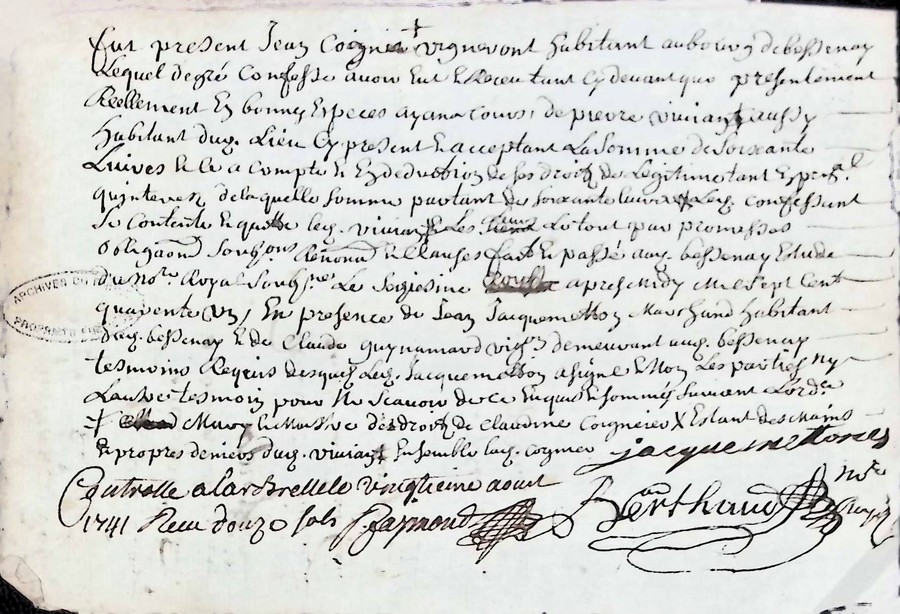 fut present Jean Coignier + vigneront habitant au bourg de bessenay
Lequel de gré Confesse avoir Eut et Receu tant Cy devant que presentement
Reellement En bonnes Especes ayant Cours, de pierre viviant aussy
habitant dud. Lieu Cy present et acceptant La Somme de Soixante
Livres et Ce a Compte et En deduction de ses droits de Legitime tant En prl.
qu'interest de laquelle Somme partant de soixante livres led. Confessant
Se Contente et quitte led. viviant et Les siens Le tout par promesses
obligaõns Soubons Renonõns et Clauses fait et passé aud. bessenay Etude
du no.re Royal Soub.né Le Seizieme aoust apres Midy Mil Sept Cent
quarente Un, En presence de Jean Jacquemetton Marchand habitant
dud. bessenay et de Claude guynamard vig.n demeurant aud. bessenay
tesmoins Requis desquels Led. Jacquemetton a signé et Non Les parties ny
L'autre tesmoin pour Ne Scavoir de ce Enquis et sommés suivant L'ord.ce
+ Mary et Maistre des droits de Claudine Coignier X Estant des mains
et propres deniers dud. viviant Ensemble led. Cognier jacquemetton
Controllé a larbrelle le vingtieme aout Berthaud no.re Royal
1741 Receu douze sols Raymond
ARCHIVES DU
PROPRIETE PUB